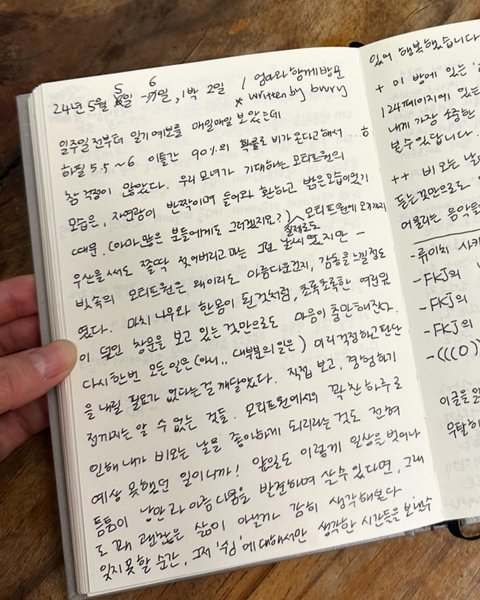 24년 5월 5일 - 6일, 1박 2일 / 엄마와 함께 방문
* written by brury
일주일 전부터 일기예보를 매일매일 보았는데
하필 5.5 ~ 6 이틀간 90%의 확률로 비가 온다고 해서...
참 걱정이 많았다. 우리 모녀가 기대하는 모티프원의
모습은, 자연광이 반짝이며 들어와 환하고 밝은 모습이었기
때문. (아마 많은 분들에게도 그러겠지요?) 모티프원에 오기까지
실제로도
우산을 써도 쫄딱 젖어버리고 마는 그런 날씨였지만 -
빗속의 모티프원은 왜이리도 아름다운건지, 감동을 느낄정도
였다. 마치 나무와 한몸이 된것처럼, 초록초록한 여러워
이 덮인 창문을 보고 있는 것만으로도 마음이 충만해진다.
다시 한번 모든 일은 (아니.. 대부분의 일은) 미리 걱정하고 판단
을 내릴 필요가 없다는 걸 깨달았다. 직접 보고, 경험하기
전까지는 알 수 없는 것들. 모티프원에서의 꽉 찬 하루로
인해 내가 비오는 날을 좋아하게 되리라는 것도 전혀
예상 못했던 일이니까! 앞으로 이렇게 일상을 벗어나
틈틈이 낭만과 아름다움을 발견하며 살 수 있다면, 그래
도 꽤 괜찮은 삶이 아닐까 감히 생각해본다
잊지 못할 순간, 그저 '쉼'에 대해서만 생각한 시간들을 보낼수
있어 행복했습니다
+ 이 방에 있는
124페이지에 있는
내게 가장 소중한
볼 수 있답니다.
++ 비오는 날
듣는 것만으로도
어울리는 음악을
- 류이치 사카
- FKJ의
- FKJ의
- FKJ의
- (((O)))
이곳을
무탈히